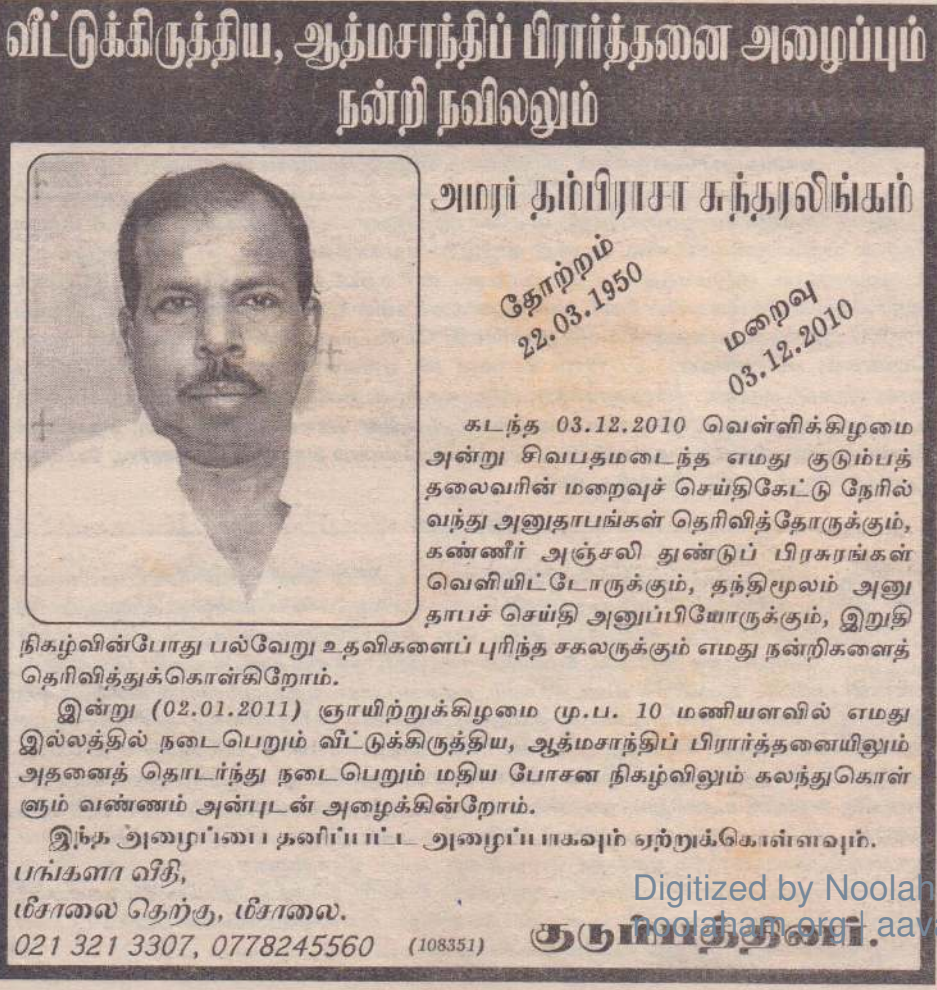 வீட்டுக்கிருத்திய, ஆத்மசாந்திப் பிரார்த்தனை அழைப்பும்
நன்றி நவிலலும்
அமரர் தம்பிராசா சுந்தரலிங்கம்
தோற்றம்
22.03.1950
மறைவு
03.12.2010
கடந்த 03.12.2010 வெள்ளிக்கிழமை
அன்று சிவபதமடைந்த எமது குடும்பத்
தலைவரின் மறைவுச் செய்திகேட்டு நேரில்
வந்து அனுதாபங்கள் தெரிவித்தோருக்கும்,
கண்ணீர் அஞ்சலி துண்டுப் பிரசுரங்கள்
வெளியிட்டோருக்கும், தந்திமூலம் அனு
தாபச் செய்தி அனுப்பியோருக்கும், இறுதி
நிகழ்வின்போது பல்வேறு உதவிகளைப் புரிந்த சகலருக்கும் எமது நன்றிகளைத்
தெரிவித்துக்கொள்கிறோம்.
இன்று (02.01.2011) ஞாயிற்றுக்கிழமை மு.ப. 10 மணியளவில் எமது
இல்லத்தில் நடைபெறும் வீட்டுக்கிருத்திய, ஆத்மசாந்திப் பிரார்த்தனையிலும்
அதனைத் தொடர்ந்து நடைபெறும் மதிய போசன நிகழ்விலும் கலந்துகொள்
ளும் வண்ணம் அன்புடன் அழைக்கின்றோம்.
இந்த அழைப்பை தனிப்பட்ட அழைப்பாகவும் ஏற்றுக்கொள்ளவும்.
பங்களா வீதி,
மீசாலை தெற்கு, மீசாலை.
021 321 3307, 0778245560 (108351)
குடும்பத்தினர்.
Digitized by Noolah
noolaham.org | aav